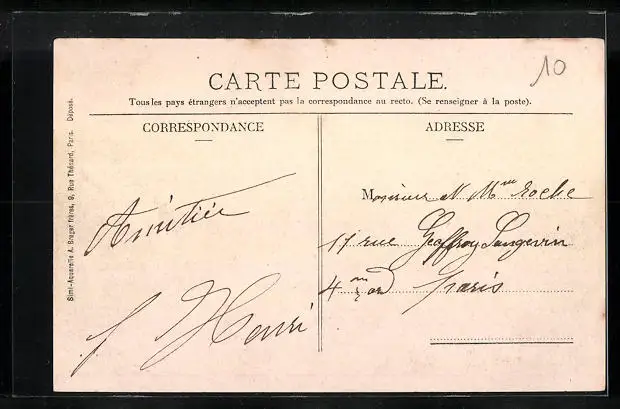 10
CARTE POSTALE.
Tous les pays étrangers n'acceptent pas la correspondance au recto. (Se renseigner à la poste).
CORRESPONDANCE
ADRESSE
Simi-Aquarelle A. Breger frères, 9, Rue Thénard, Paris. Déposé.
Amitiée
Henri
Monsieur et Mme Roche
17 rue Geoffroy Langevin
4 Paris